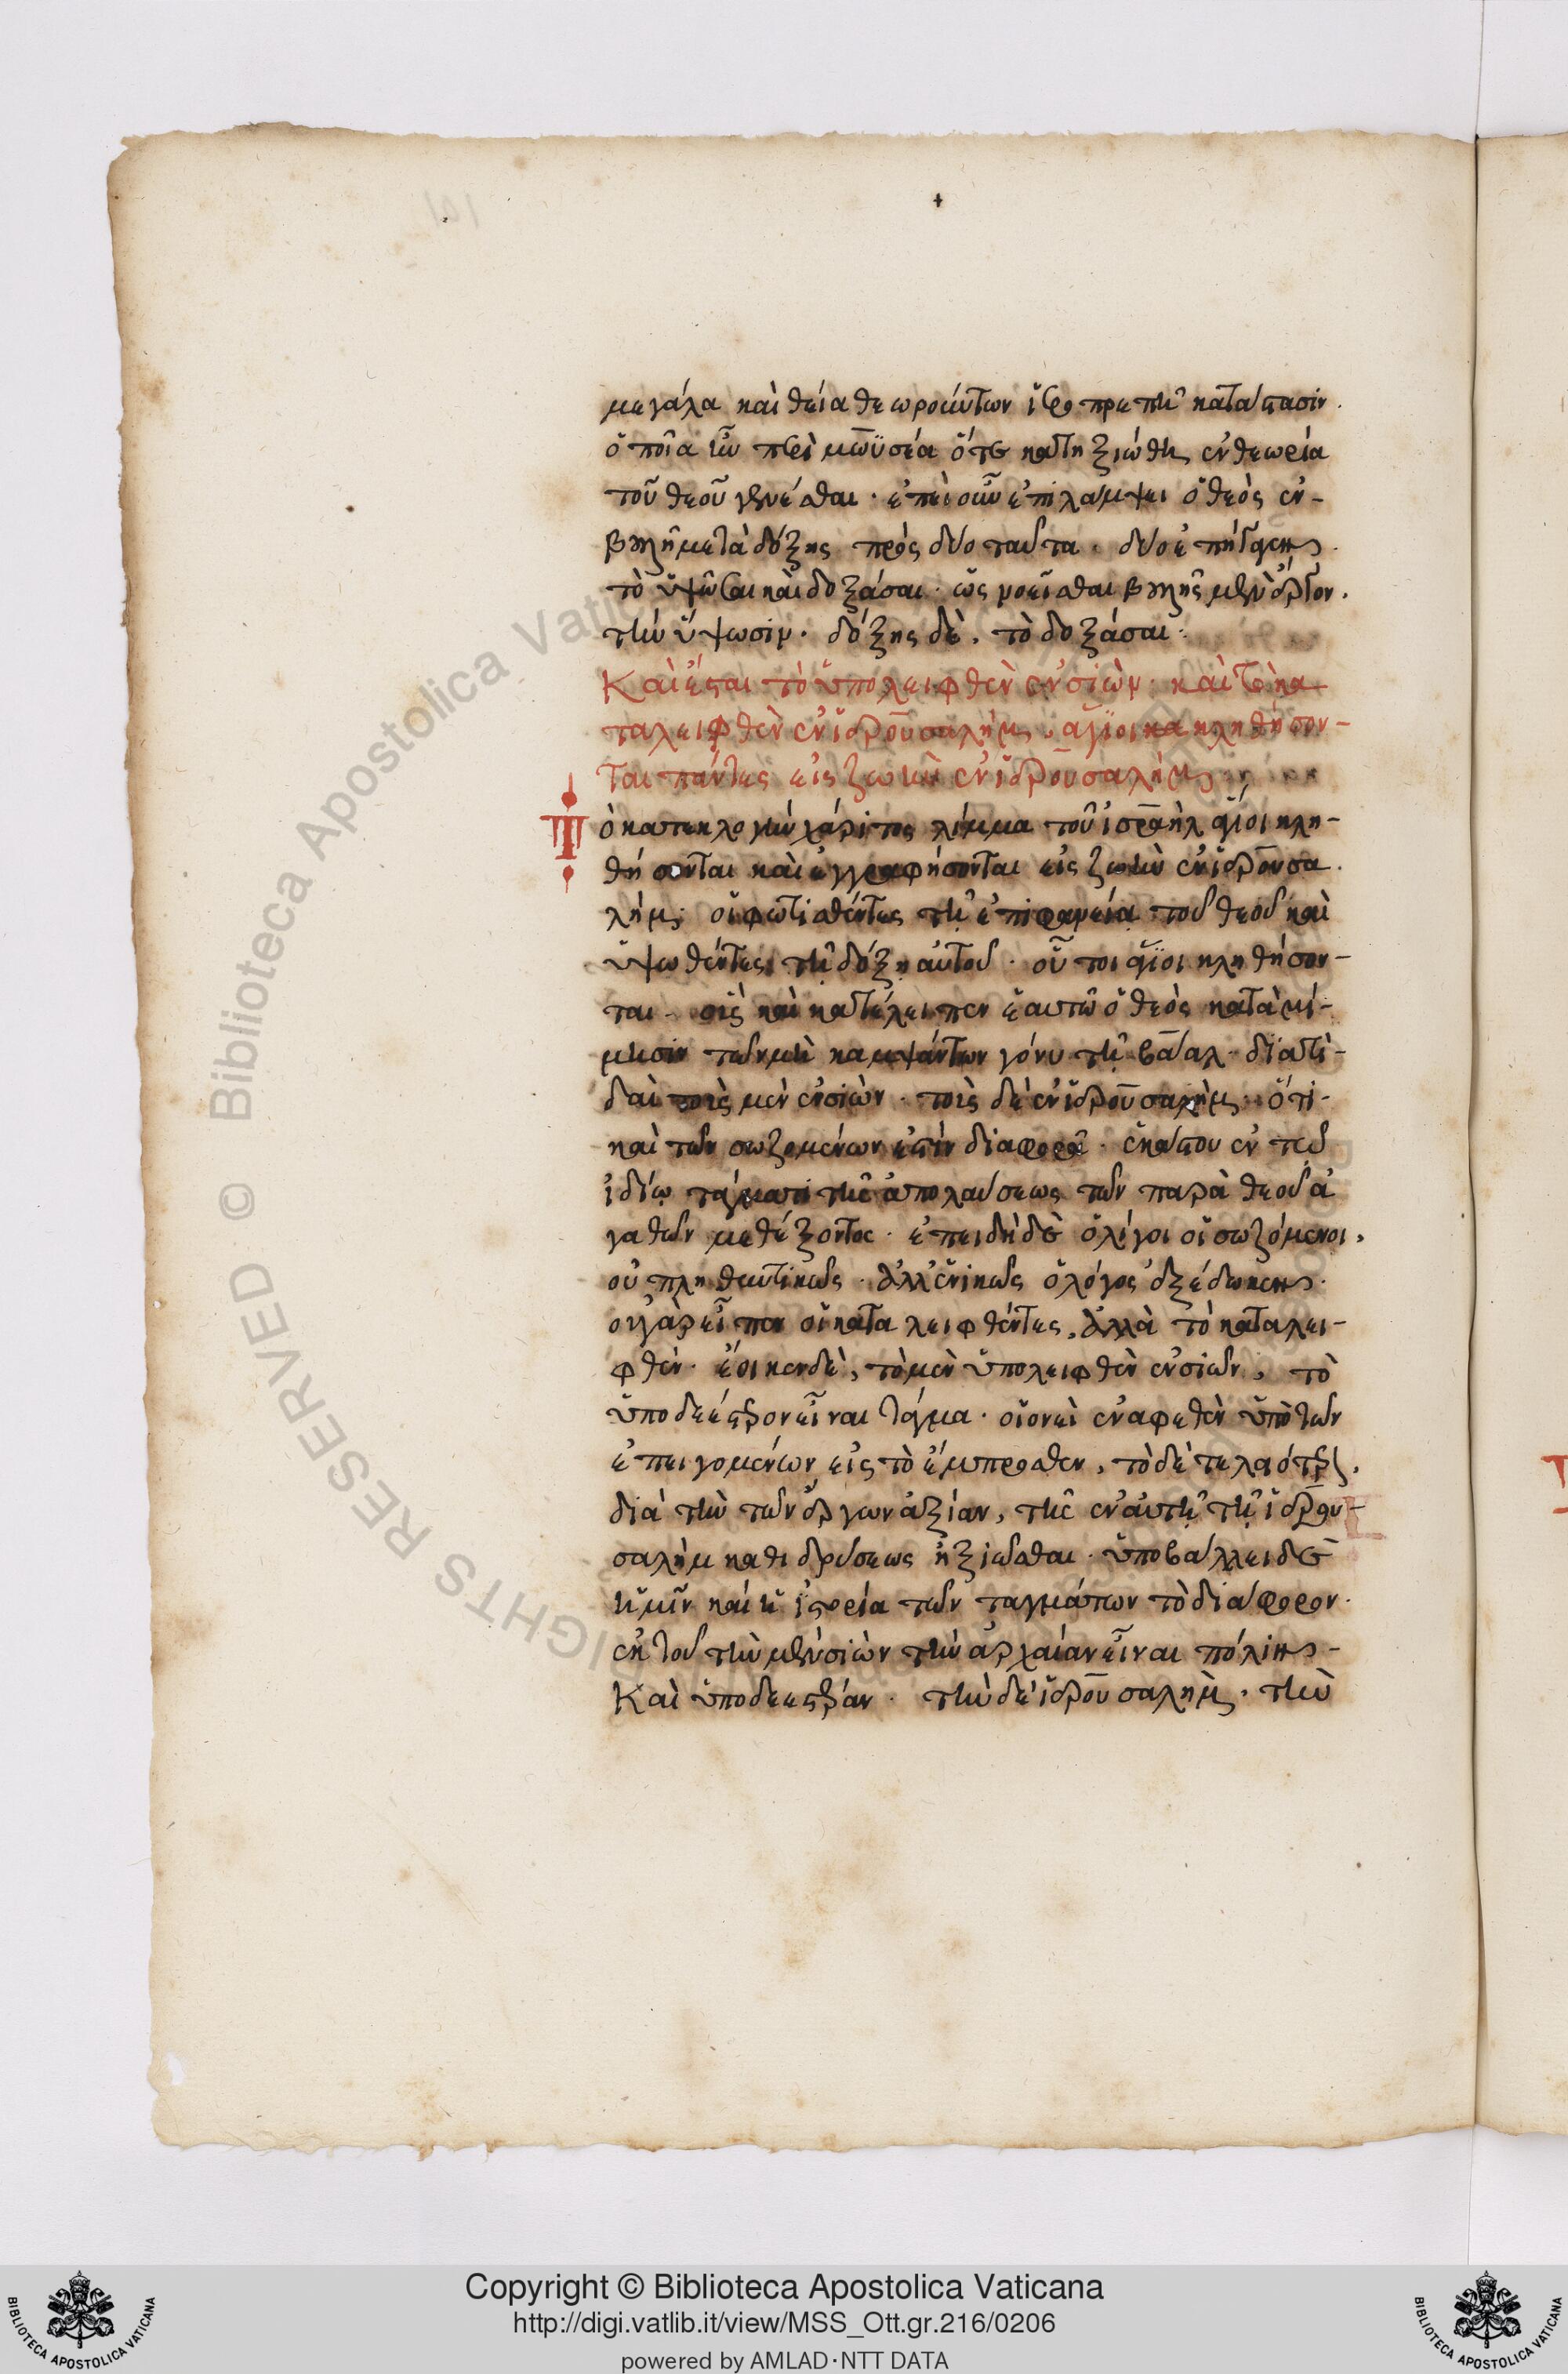 μεγάλα καὶ θεία θεωρούντων ἱεροπρεπῆ κατάστασιν.
ὁποῖα ἦν περὶ μωϋσέα ὅτε κατηξιώθη ἐν θεωρία
τοῦ θεοῦ γενέσθαι · ἐπεὶ οὖν ἐπιλάμψει ὁ θεὸς ἐν-
βουλῆ μετὰ δόξης πρὸς δύο ταῦτα · δύο ἐπήγαγεν.
τὸ ὑψῶσαι καὶ δοξάσαι · ὡς νοεῖσθαι βουλῆς μὲν ἔργον,
τὴν ὕψωσιν · δόξης δὲ, τὸ δοξάσαι :
Καὶ ἔσται τὸ ὑπολειφθὲν ἐν σιὼν · καὶ τὸ κα
ταλειφθὲν ἐν ἱερουσαλὴμ, ἅγιοι κληθήσον-
ται πάντες εἰς ζωὴν ἐν ἱερουσαλήμ
Τὸ κατ εκλογὴν χάριτος λίμμα τοῦ ἰσραὴλ ἅγιοι κλη-
θήσονται καὶ ἐγγραφήσονται εἰς ζωὴν ἐν ἱερουσα
λήμ · οἱ φωτισθέντες τῆ ἐπιφανεία τοῦ θεοῦ καὶ
ὑψωθέντες τῆ δόξη αὐτοῦ · οὗτοι ἅγιοι κληθήσον-
ται · οὓς καὶ κατέλειπεν ἑαυτῶ ὁ θεὸς κατὰ μί-
μησιν τῶν μὴ καμψάντων γόνυ τῆ βάαλ · διατὶ-
δαὶ τοὺς μὲν ἐν σιὼν · τοὺς δὲ ἐν ἱερουσαλὴμ · ὅτι
καὶ τῶν σωζομένων ἐστὶν διαφορὰ · ἑκάστου ἐν τῶ
ἰδίω τάγματι τῆς ἀπολαύσεως τῶν παρὰ θεοῦ ἀ
γαθῶν μεθέξοντος · ἐπειδὴ δὲ ὀλίγοι οἱ σωζόμενοι,
οὐ πληθυντικῶς · ἀλλ' ἑνικῶς ὁ λόγος ἐξέδωκεν.
οὐ γὰρ εἶπεν οἱ καταλειφθέντες, ἀλλὰ τὸ καταλει-
φθέν · ἔοικεν δὲ, τὸ μὲν ὑπολειφθὲν ἐν σιὼν, τὸ
ὑποδεέστερον εἶναι τάγμα · οἱονεὶ ἐναφεθὲν ὑπὸ τῶν
ἐπειγομένων εἰς τὸ ἔμπροσθεν, τὸ δὲ
διὰ τὴν τῶν ἔργων ἀξίαν, τῆς ἐν αὐτῆ τῆ ἱερου-
σαλὴμ καθιδρύσεως ἠξιῶσθαι · ὑποβάλλει δὲ
ἡμῖν καὶ ἡ ἱστορία τῶν ταγμάτων τὸ διάφορον.
ἐκ τοῦ τὴν μὲν σιὼν τὴν ἀρχαίαν εἶναι πόλιν-
Καὶ ὑποδεεστέραν · τὴν δὲ ἱερουσαλὴμ, τὴν
Copyright © Biblioteca Apostolica Vaticana
http://digi.vatlib.it/view/MSS_Ott.gr.216/0206
powered by AMLAD·NTT DATA